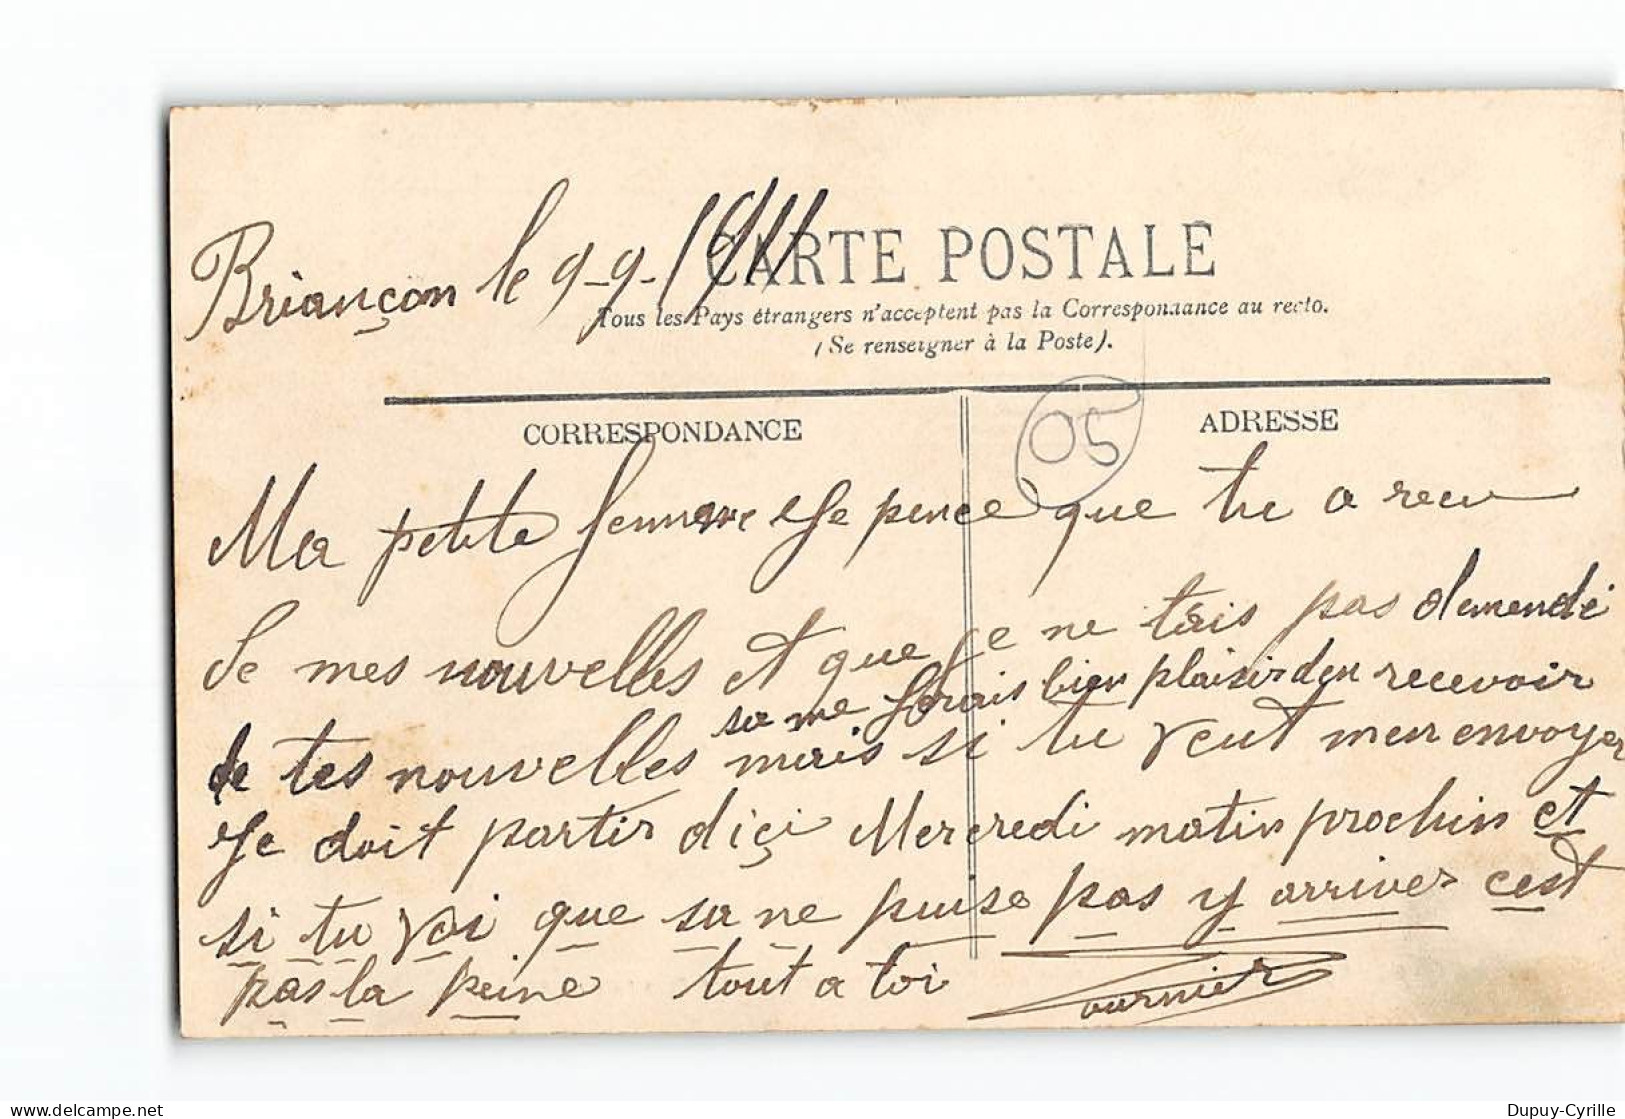 Briançon le 9-9-1911
CARTE POSTALE
Tous les Pays étrangers n'acceptent pas la Correspondance au recto.
(Se renseigner à la Poste).
CORRESPONDANCE
ADRESSE
05
Ma petite femme Je pence que tu a recu
de mes nouvelles et que je ne tais pas demendé
sa me ferais bien plaisir den recevoir
de tes nouvelles mais si tu veut men envoyer
Je doit partir diçi Mercredi matin prochin et
si tu voi que sa ne puise pas y arriver cest
pas la peine tout a toi
Fournier
Dupuy-Cyrille